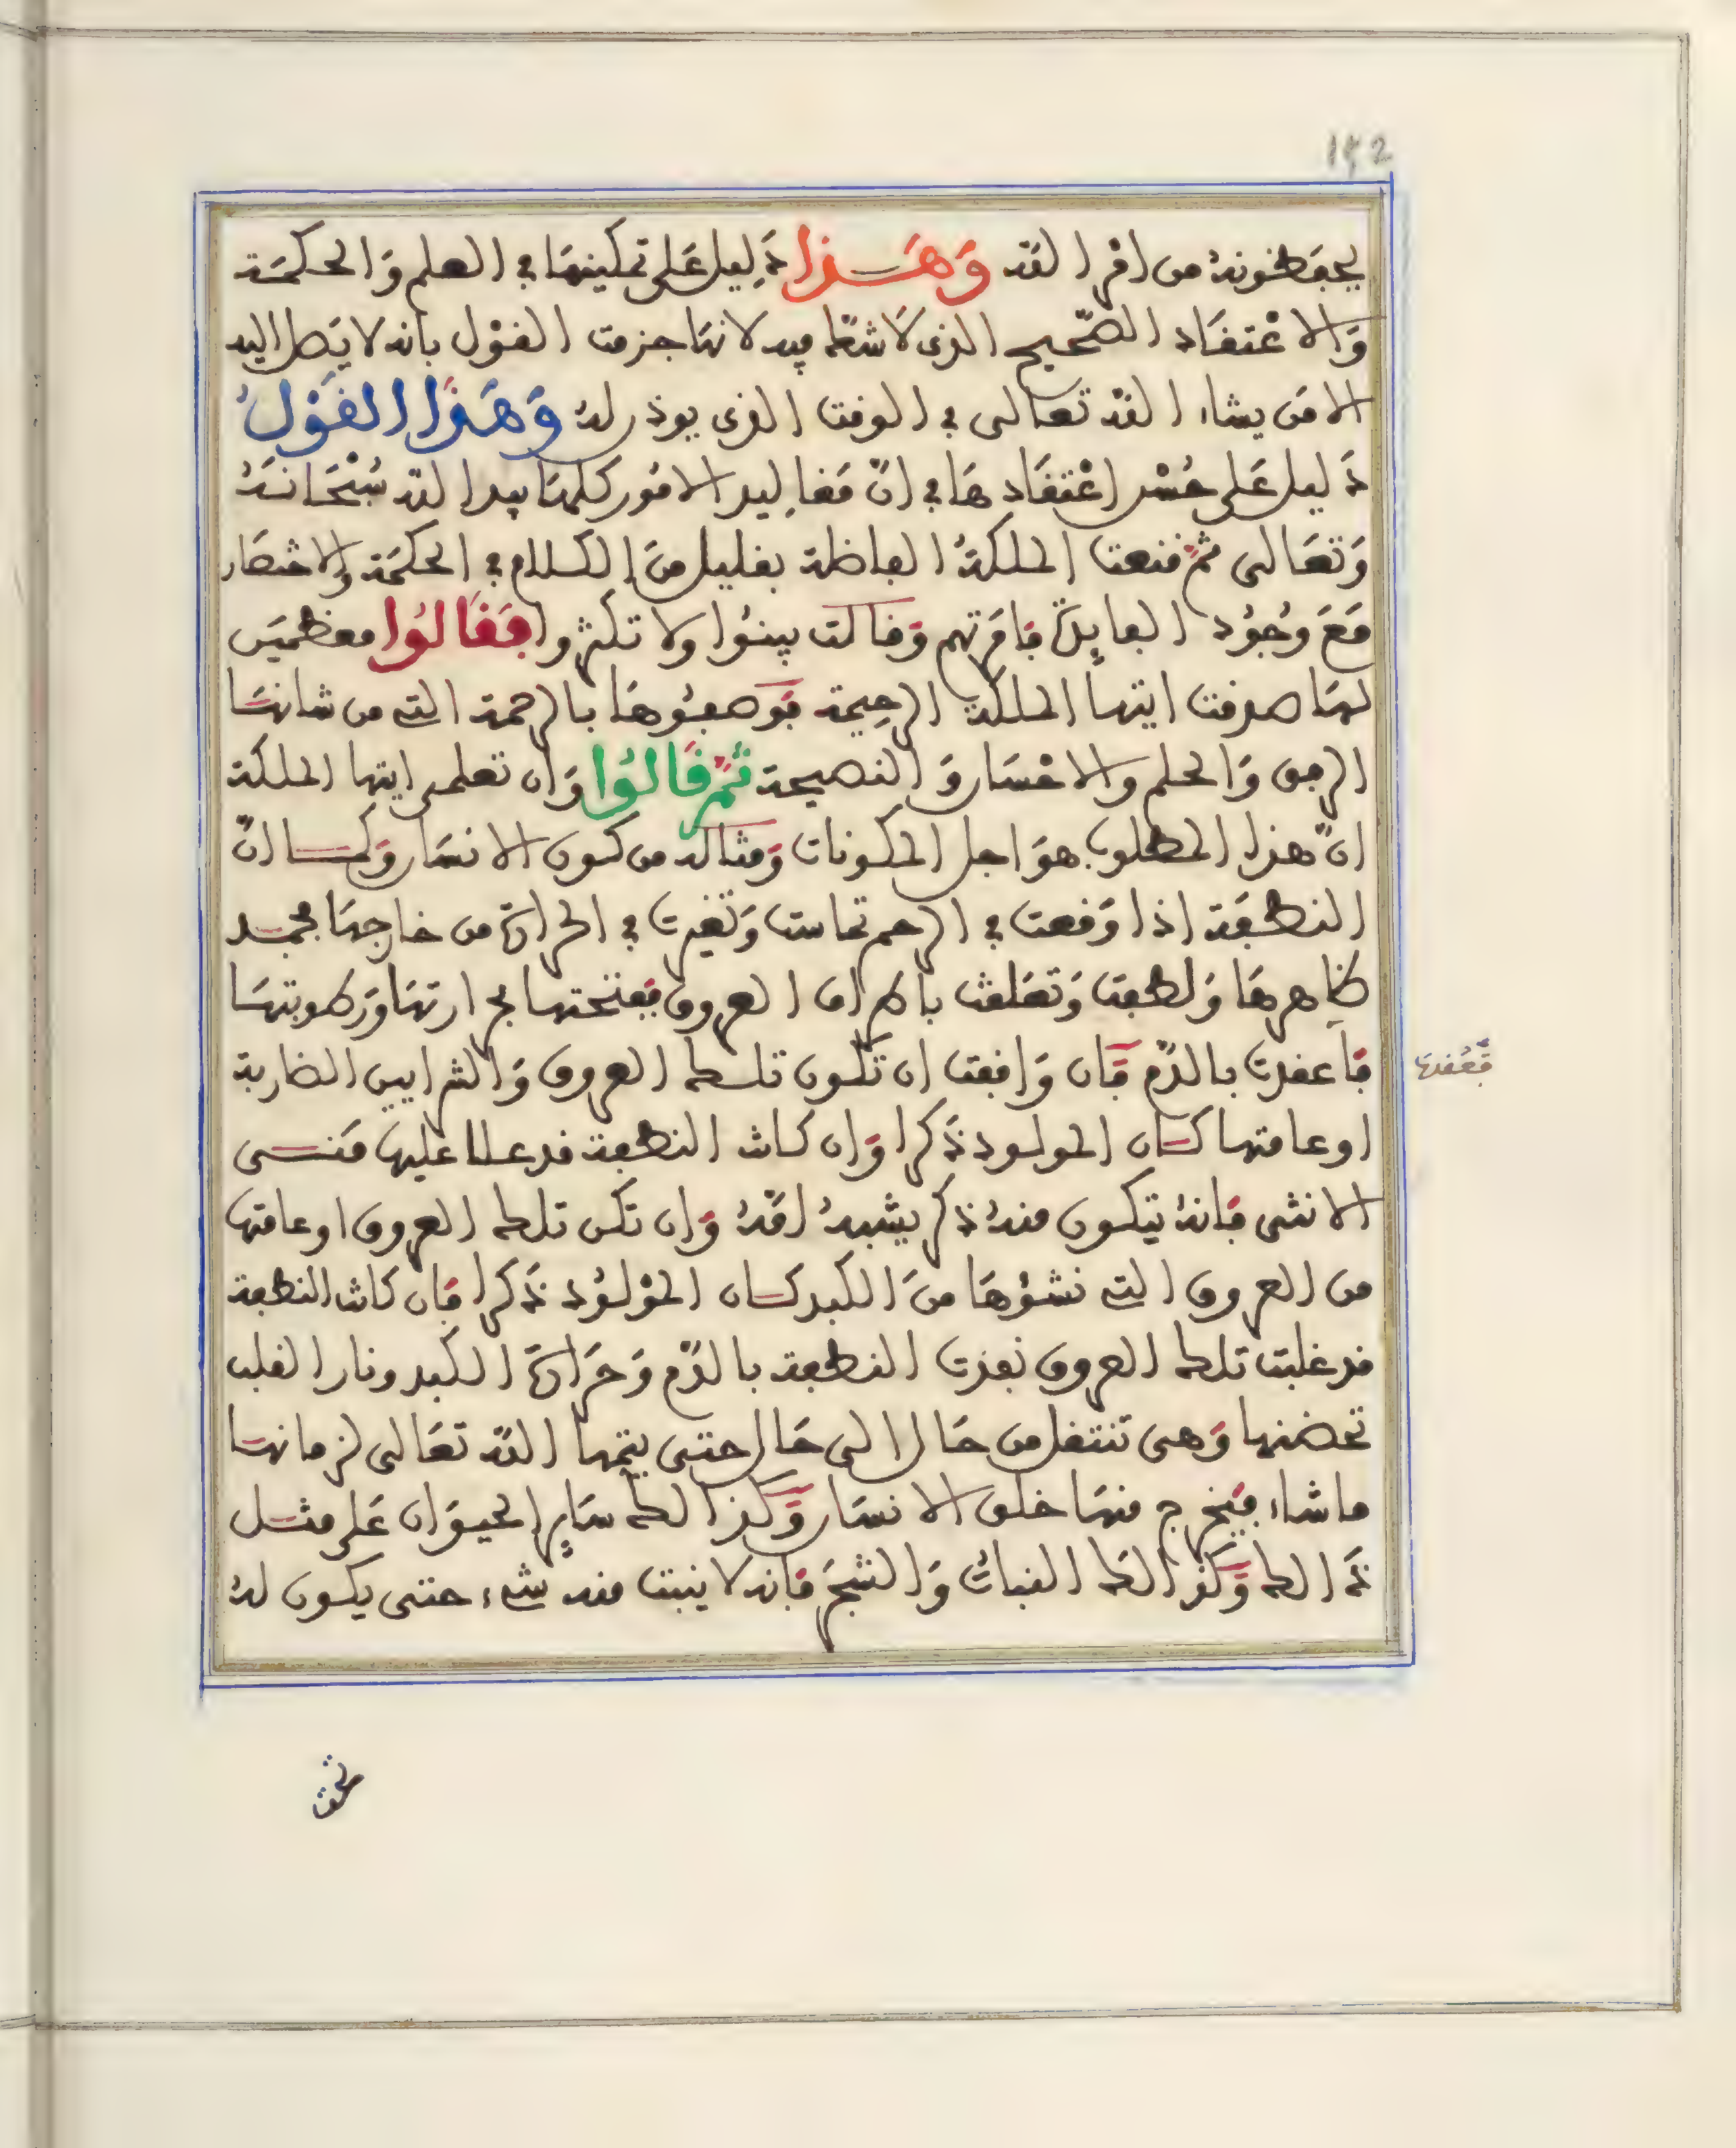 ١٤٢
يحفظونه من امر الله وَهَـــذا دَلِيل عَلى تمكينهَا في العلم وَالحكمَة
وَالاعْتقَاد الصّحيح الذى لاَ شكّ فيه لانهَا جزمت القوْل بانه لا يَصل اليه
الا مَن يشاء اللهُ تعَالى في الوقت الذى يوذن له وَهَذا القَوْلُ
دَليل عَلى حُسْن اعْتقَادهَا في انّ مَقاليد الامُور كلهَا بيد الله سُبْحَانَهُ
وَتعَالى ثمّ قنعت الملكةُ الفاضلة بقليل منَ الكلام في الحكمَة والاختصَار
مَعَ وُجُود الفايدَة فامَرتهم وَقالت بينُوا ولا تكثروا فَقَالُوا معظمين
لهَا صدقت ايتها الملكة الرحِيمة فوَصفُوهَا بالرحمة التي من شانهَا
الرفق وَالحلم والاحْسَان وَالنصيحة ثُمّ قَالُوا وَان تعلمى ايتها الملكة
انّ هذا المطلوب هوَ اجل المكونات وَمثاله من كون الانسَان وَكمــا انّ
النطفَة اذا وَقعت في الرحم تماست وَتغيرت في الحرارة من خارجهَا فجمد
ظاهرهَا وَلطفت وَتعَلقت باطراف العروق فيفتحتها بحرارتهَا وَرطوبتهَا
فَاعقدت بالدّم فَان وَافقت ان تكون تلــك العروق وَالشرايين الضاربة
فَعُقدت
اوعامتها كــان المولود ذَكرا وَان كانت النطفة قد عــلا عليها مَنــى
الانثى فَانهُ يتكون منهُ ذكر يشبهُ امّهُ وَان تكن تلك العروق اوعامتها
من العروق التي نشوُهَا منَ الكبد كــان الموْلوُد ذَكرا فَان كانت النطفة
قد غلبت تلك العروق نفذت النطفة بالدّم وَحَرارَة الكبد ونار القلب
تحضنها وَهى تنتقل من حَال الى حَال حتى يتمها اللهُ تعَالى لزمانهَا
ما شاء فيَخرج منهَا خلق الانسَان وَكذالك سَايِر الحيوَان عَلى مثــل
ذَالك وَكذالك النباتُ وَالشجَر فَانه لا ينبت منه شيء حتى يكون لهُ